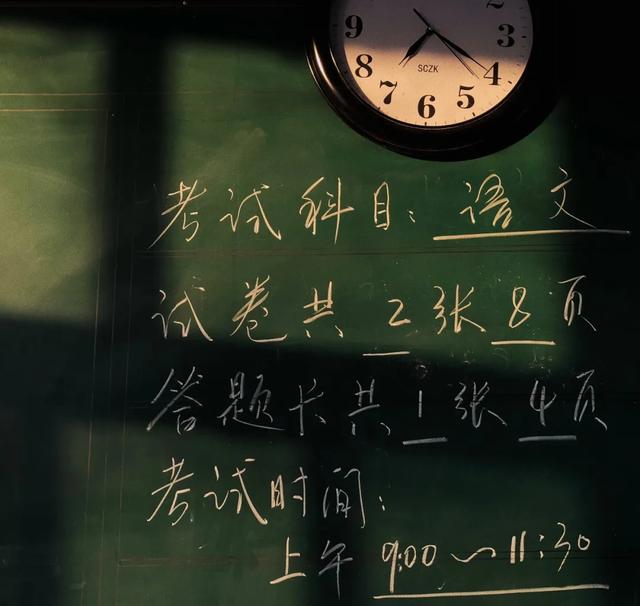 2
9 3
8 4
7 5
6
SCZK
考试科目: 语文
试卷共 2 张 8 页
答题卡共 1 张 4 页
考试时间:
上午 9:00 ~ 11:30